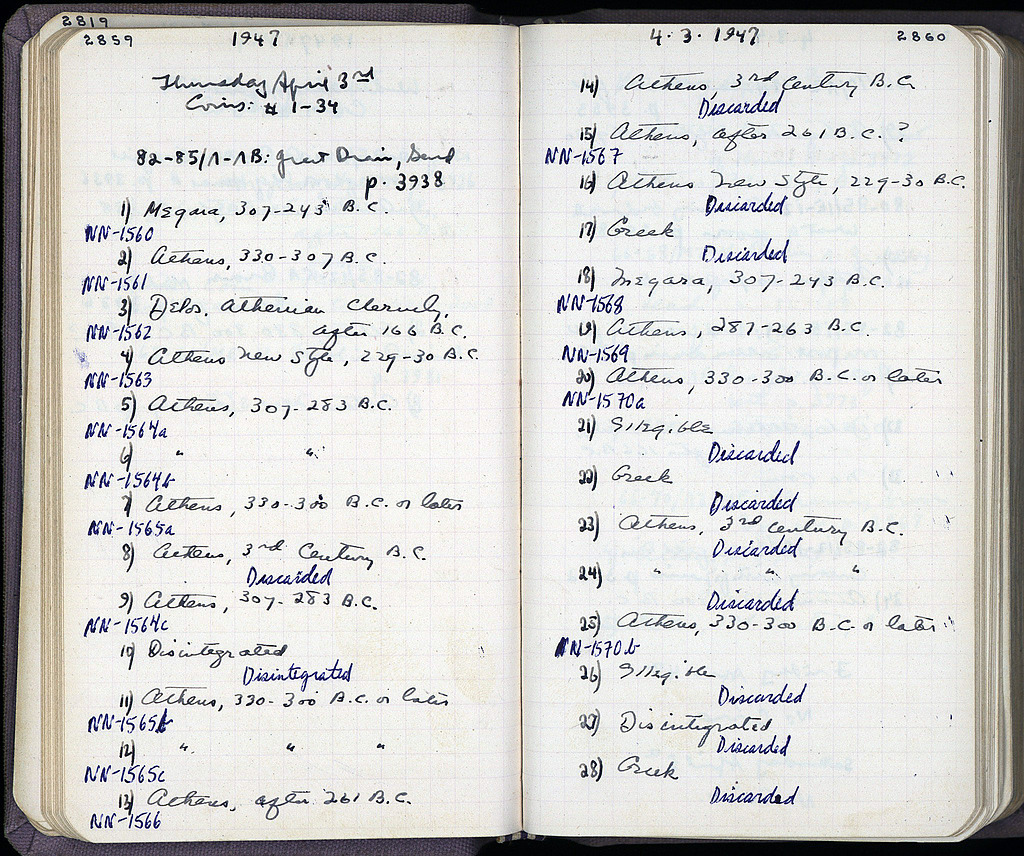 2819
2859 1947
Thursday April 3rd
Coins: # 1-34
82-85/Λ-ΛB: Great Drain, Sand
p. 3938
1) Megara, 307-243 B.C.
NN-1560
2) Athens, 330-307 B.C.
NN-1561
3) Delos. Athenian Cleruchy,
NN-1562 after 166 B.C.
4) Athens New Style, 229-30 B.C.
NN-1563
5) Athens, 307-283 B.C.
NN-1564a
6) " "
NN-1564b
7) Athens, 330-300 B.C. or later
NN-1565a
8) Athens, 3rd Century B.C.
Discarded
9) Athens, 307-283 B.C.
NN-1564c
10) Disintegrated
Disintegrated
11) Athens, 330-300 B.C. or later
NN-1565b
12) " " "
NN-1565c
13) Athens, after 261 B.C.
NN-1566
4.3.1947 2860
14) Athens, 3rd Century B.C.
Discarded
15) Athens, after 261 B.C. ?
NN-1567
16) Athens New Style, 229-30 B.C.
Discarded
17) Greek
Discarded
18) Megara, 307-243 B.C.
NN-1568
19) Athens, 287-263 B.C.
NN-1569
20) Athens, 330-300 B.C. or later
NN-1570a
21) Illegible
Discarded
22) Greek
Discarded
23) Athens, 3rd Century B.C.
Discarded
24) " " "
Discarded
25) Athens, 330-300 B.C. or later
NN-1570b
26) Illegible
Discarded
27) Disintegrated
Discarded
28) Greek
Discarded